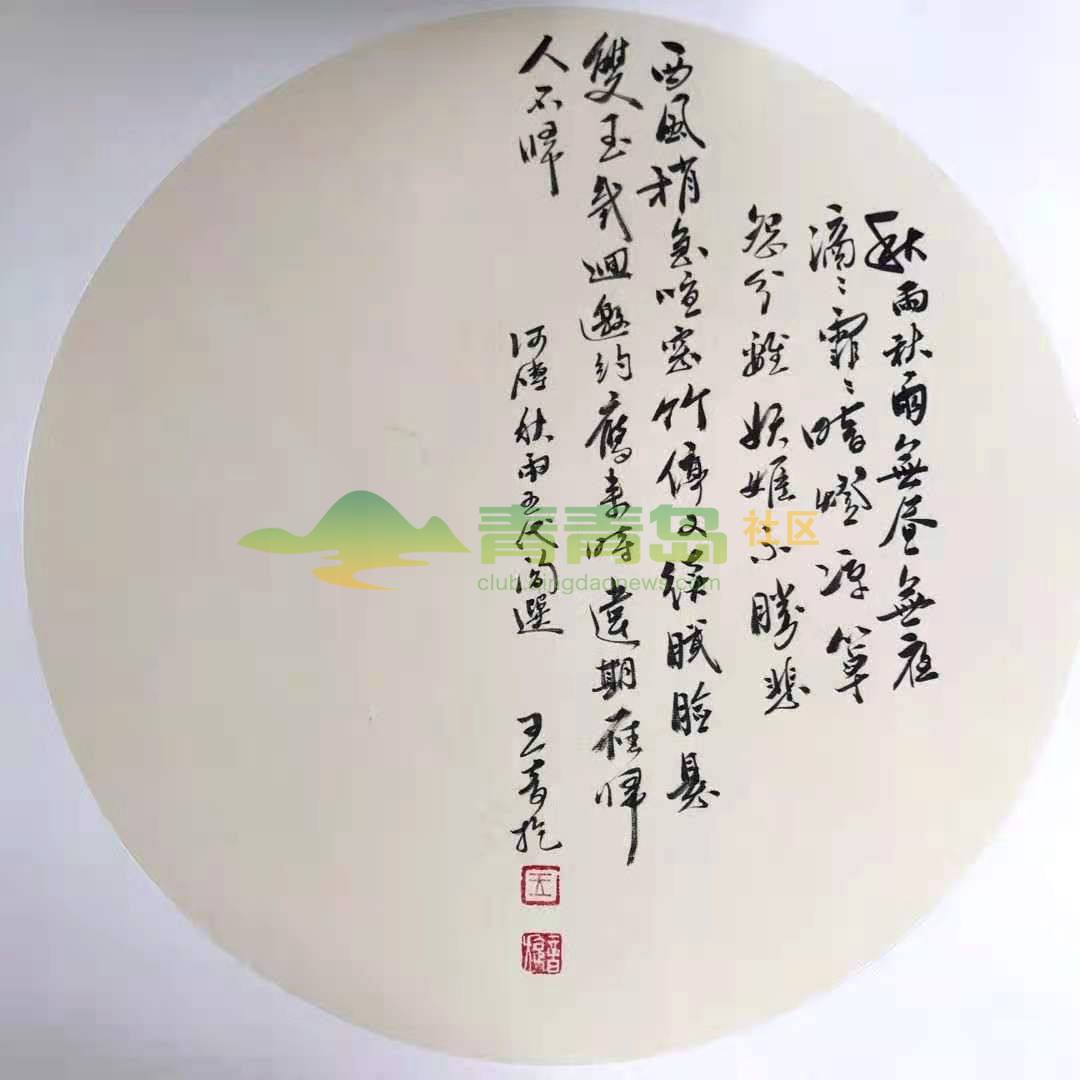 秋雨秋雨無昼無夜
滴〻霏〻暗燈凉簟
怨分離妖姬不勝悲
西風梢急喧窓竹停又续膩臉悬
雙玉幾迴邀約雁来時違期雁歸
人不歸
河傳秋雨五代阎選
王音
王
青青岛社区
club.qingdaonews.com